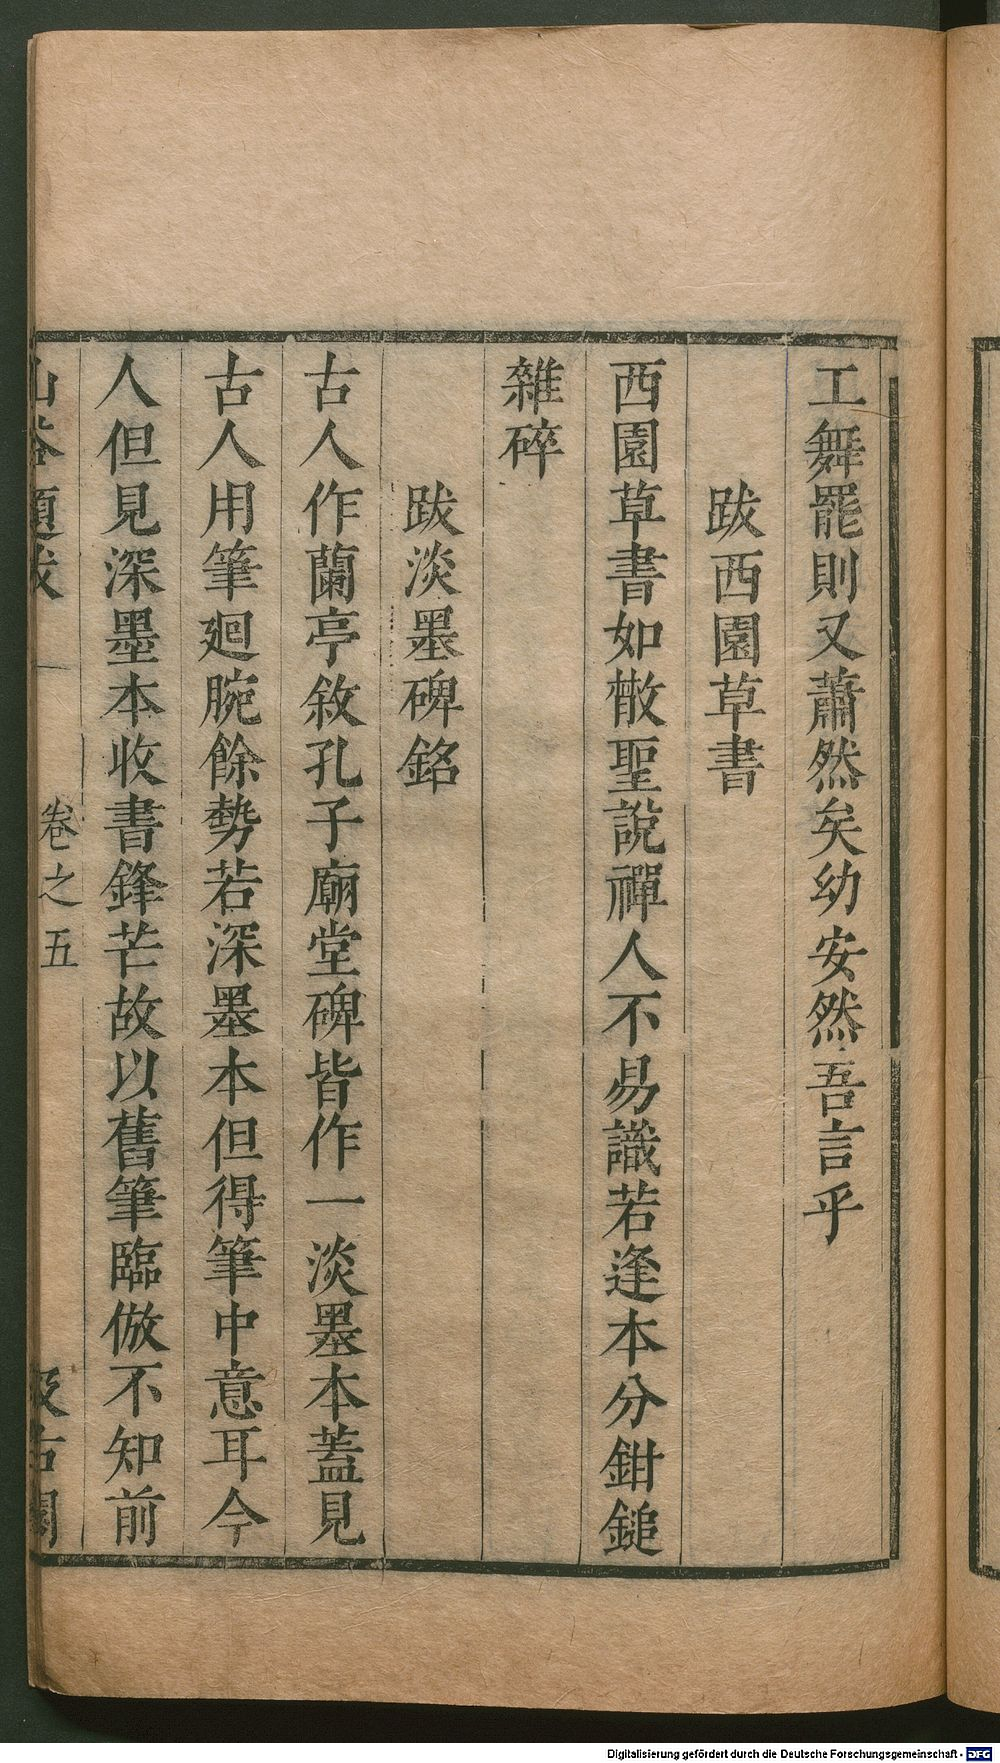 工舞罷則又蕭然矣幼安然吾言乎
跋西園草書
西園草書如散聖說禪人不易識若逢本分鉗鎚
雜碎
跋淡墨碑銘
古人作蘭亭敘孔子廟堂碑皆作一淡墨本蓋見
古人用筆廻腕餘勢若深墨本但得筆中意耳今
人但見深墨本收書鋒芒故以舊筆臨倣不知前
山谷題跋 卷之五 汲古閣
Digitalisierung gefördert durch die Deutsche Forschungsgemeinschaft - DFG